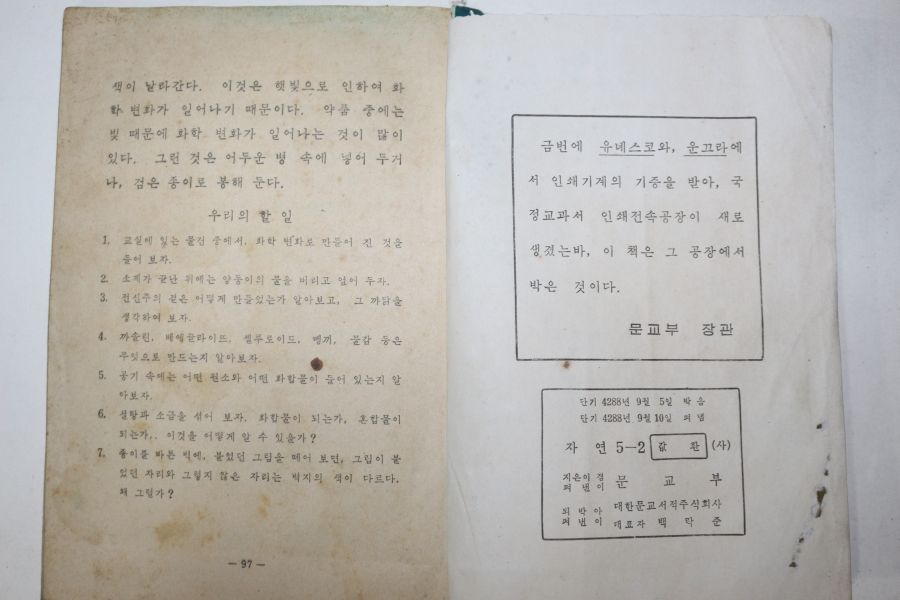 색이 날라간다. 이것은 햇빛으로 인하여 화
학 변화가 일어나기 때문이다. 약품 중에는
빛 때문에 화학 변화가 일어나는 것이 많이
있다. 그런 것은 어두운 병 속에 넣어 두거
나, 검은 종이로 봉해 둔다.
우리의 할 일
1. 교실에 있는 물건 중에서, 화학 변화로 만들어 진 것을
들어 보자.
2. 소제가 끝난 뒤에는 양동이의 물을 버리고 엎어 두자.
3. 전신주의 끝은 어떻게 만들었는가 알아보고, 그 까닭을
생각하여 보자.
4. 까솔린, 베에클라이트, 셀루로이드, 뼁끼, 물감 등은
무엇으로 만드는지 알아보자.
5. 공기 속에는 어떤 원소와 어떤 화합물이 들어 있는지 알
아보자.
6. 설탕과 소금을 섞어 보자. 화합물이 되는가, 혼합물이
되는가,. 이것을 어떻게 알 수 있을가?
7. 종이를 바른 벽에, 붙었던 그림을 떼어 보면, 그림이 붙
었던 자리와 그렇지 않은 자리는 벽지의 색이 다르다.
왜 그럴가?
— 97 —
금번에 유네스코와, 운끄라에
서 인쇄기계의 기증을 받아, 국
정교과서 인쇄전속공장이 새로
생겼는바, 이 책은 그 공장에서
박은 것이다.
문교부 장관
단기 4288년 9월 5일 박음
단기 4288년 9월 10일 펴냄
자 연 5-2 값 환 (사)
지은이 겸
펴낸이 문 교 부
되박아
펴낸이 대한문교서적주식회사
대표자 백 낙 준